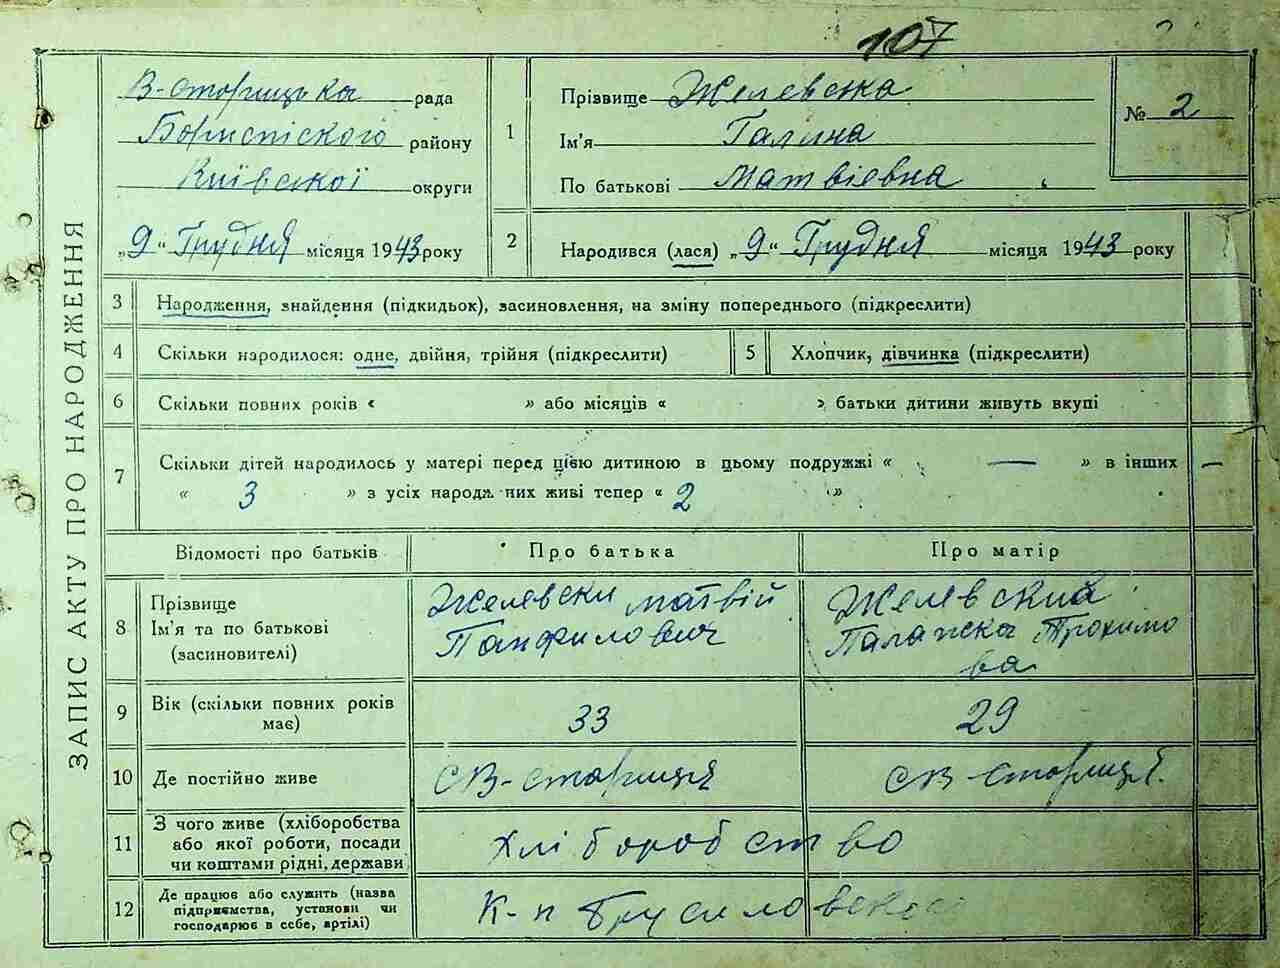 107
ЗАПИС АКТУ ПРО НАРОДЖЕННЯ
В-Старицька рада
Бориспіского району
Київської округи
„9“ Грудня місяця 1943 року
1 Прізвище Желевська
Ім'я Галина
По батькові Матвіевна
№ 2
2 Народився (лася) „9“ Грудня місяця 1943 року
3 Народження, знайдення (підкидьок), засиновлення, на зміну попереднього (підкреслити)
4 Скільки народилося: одне, двійня, трійня (підкреслити)
5 Хлопчик, дівчинка (підкреслити)
6 Скільки повних років « » або місяців « » батьки дитини живуть вкупі
7 Скільки дітей народилось у матері перед цією дитиною в цьому подружжі « — » в інших —
« 3 » з усіх народж них живі тепер « 2 »
Відомості про батьків Про батька Про матір
8 Прізвище
Ім'я та по батькові
(засиновителі)
Желевски Матвій
Панфилович
Желевский
Палажка Трохимо
ва
9 Вік (скільки повних років
має)
33 29
10 Де постійно живе с В-Стариця с В-Стариця.
11 З чого живе (хліборобства
або якої роботи, посади
чи коштами рідні, держави
хліборобство
12 Де працює або служить (назва
підприємства, установи чи
господарює в себе, артілі)
К-п Брусиловского